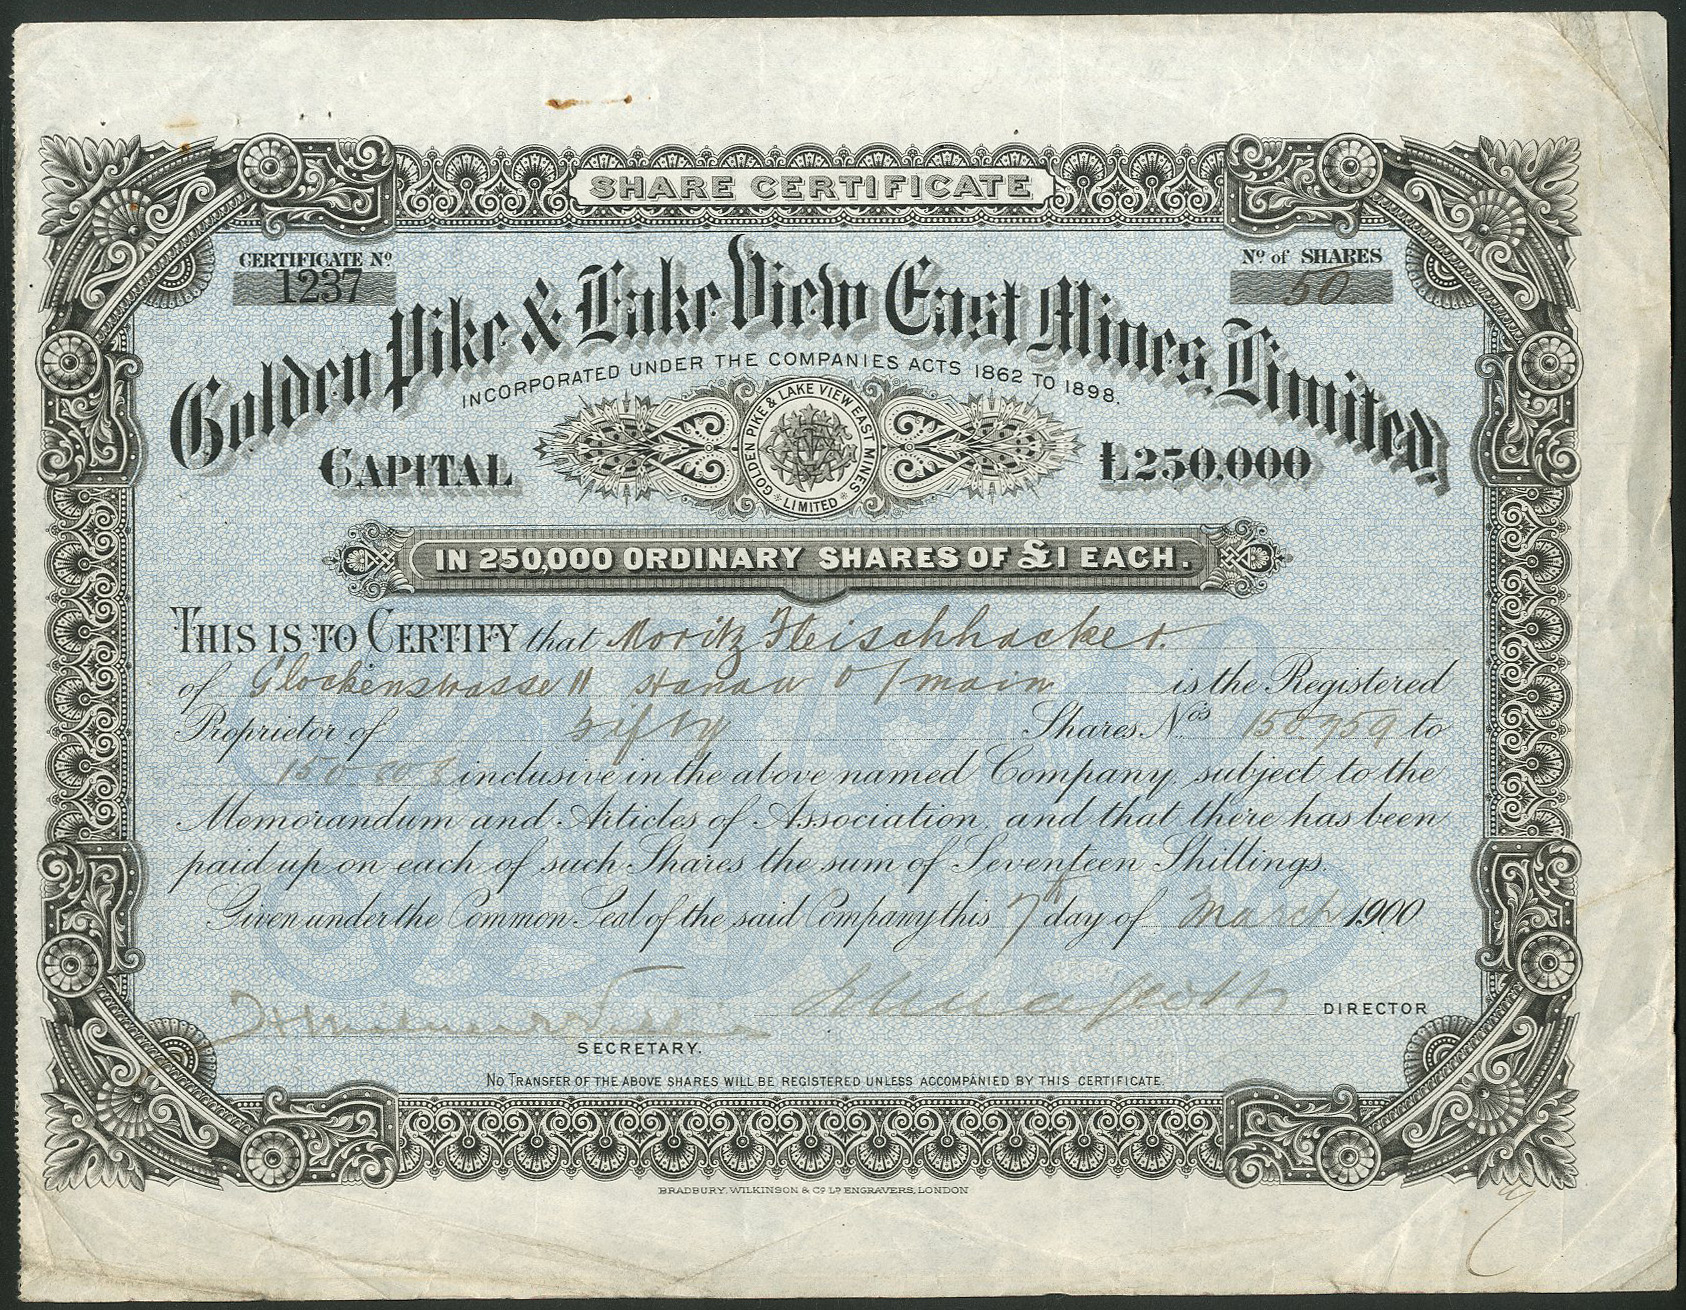 SHARE CERTIFICATE
CERTIFICATE Nº
1237
Nº of SHARES
50
Golden Pike & Lake View East Mines, Limited,
INCORPORATED UNDER THE COMPANIES ACTS 1862 TO 1898.
GOLDEN PIKE & LAKE VIEW EAST MINES
LIMITED
CAPITAL £250,000
IN 250,000 ORDINARY SHARES OF £1 EACH.
THIS IS TO CERTIFY that Moritz Fleischhacker.
of Glockenstrasse 11 Hanau o/main is the Registered
Proprietor of fifty Shares Nos 150759 to
150 808 inclusive in the above named Company, subject to the
Memorandum and Articles of Association, and that there has been
paid up on each of such Shares the sum of Seventeen Shillings.
Given under the Common Seal of the said Company this 7th day of March 1900
DIRECTOR
SECRETARY.
NO TRANSFER OF THE ABOVE SHARES WILL BE REGISTERED UNLESS ACCOMPANIED BY THIS CERTIFICATE.
BRADBURY, WILKINSON & Cº Lᴰ ENGRAVERS, LONDON